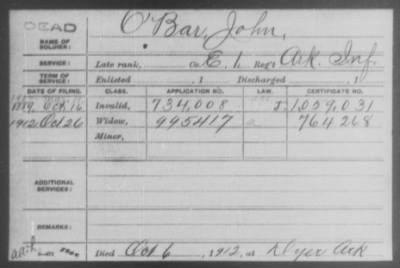 DEAD
NAME OF SOLDIER: O'Bar, John,
SERVICE: Late rank, Co. E, 1, Reg't Ark. Inf.
TERM OF SERVICE: Enlisted , 1 Discharged , 1
DATE OF FILING. CLASS. APPLICATION NO. LAW. CERTIFICATE NO.
1889, Oct 16 Invalid, 734,008 J. 1,059,031
1912 Oct 26 Widow, 995417 a 764268
Minor,
ADDITIONAL SERVICES:
REMARKS:
Died Oct 6, 1912, at Dyer Ark